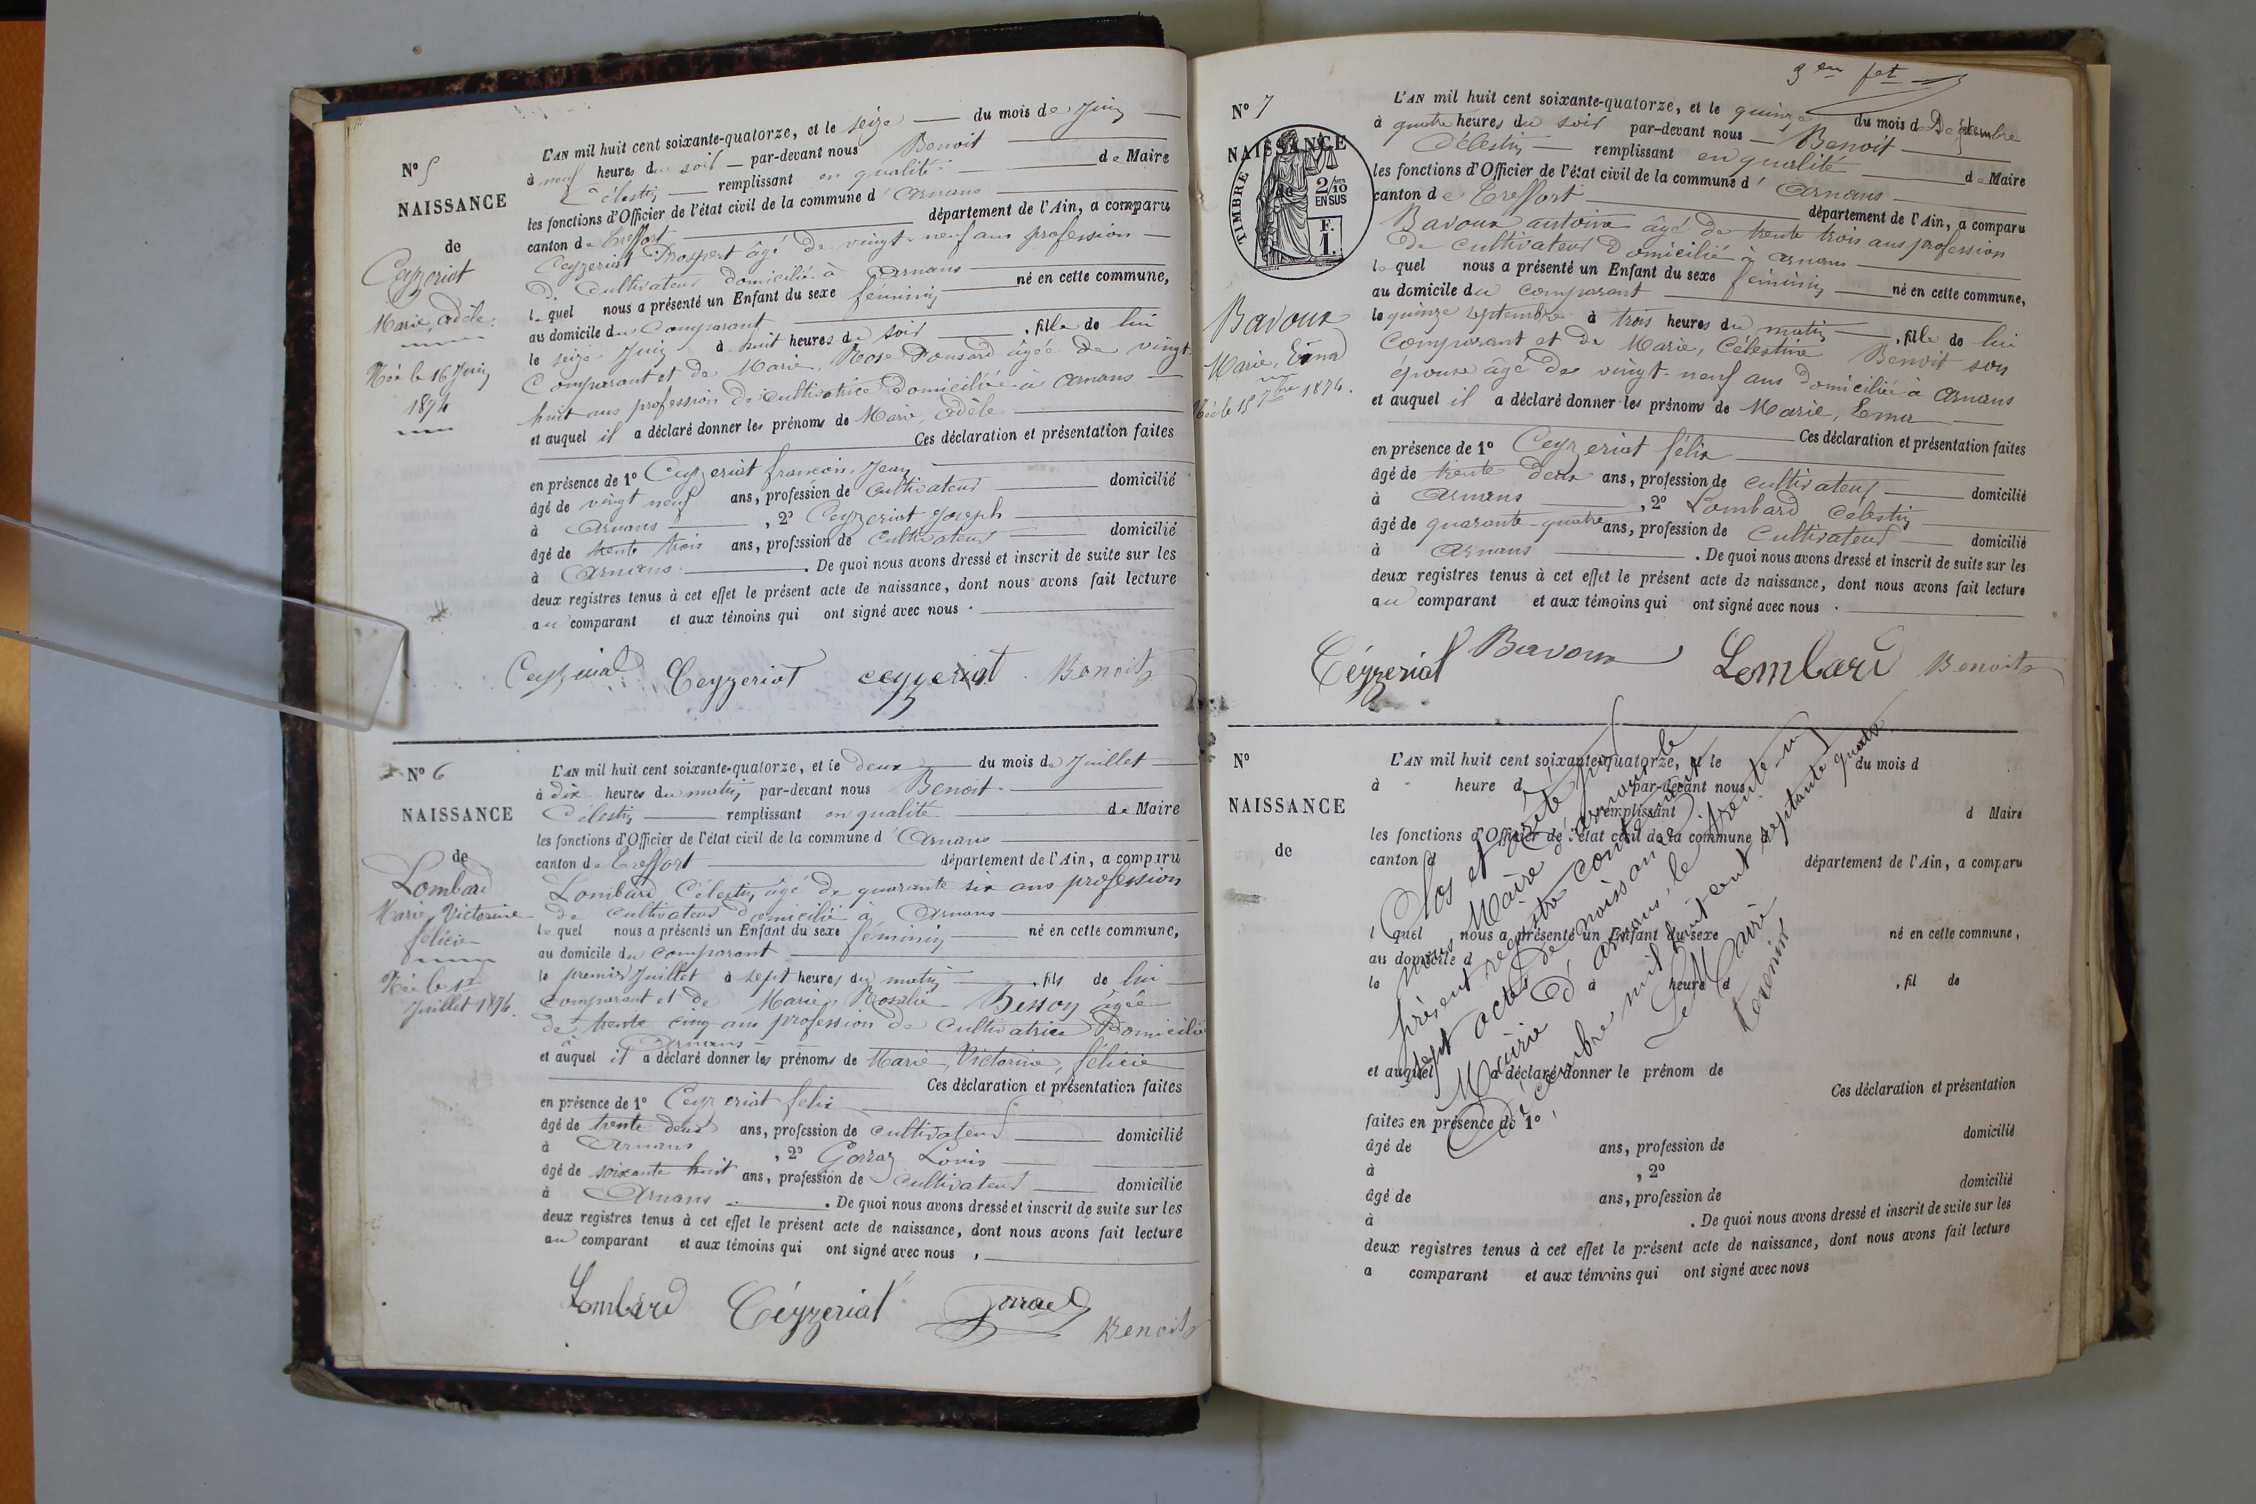 N° 5
NAISSANCE
de
Ceyzeriat
Marie, Adèle
Née le 16 Juin
1874
L'AN mil huit cent soixante-quatorze, et le seize du mois de Juin
à neuf heures du soir par-devant nous Benoit
Célestin remplissant en qualité de Maire
les fonctions d'Officier de l'état civil de la commune d'Arnans
canton de Treffort département de l'Ain, a comparu
Ceyzeriat Prospert âgé de vingt-neuf ans profession
de cultivateur domicilié à Arnans
lequel nous a présenté un Enfant du sexe féminin né en cette commune,
au domicile du comparant
le seize Juin à huit heures du soir, fille de lui
Comparant et de Marie, Rose Ponsard âgée de vingt
huit ans profession de cultivatrice domiciliée à Arnans
et auquel il a déclaré donner les prénoms de Marie, Adèle
Ces déclaration et présentation faites
en présence de 1° Ceyzeriat françois, Jean
âgé de vingt neuf ans, profession de cultivateur domicilié
à Arnans, 2° Ceyzeriat Joseph
âgé de trente trois ans, profession de cultivateur domicilié
à Arnans. De quoi nous avons dressé et inscrit de suite sur les
deux registres tenus à cet effet le présent acte de naissance, dont nous avons fait lecture
au comparant et aux témoins qui ont signé avec nous.
Ceyzeriat Ceyzeriat ceyzeriat Benoit
N° 6
NAISSANCE
de
Lombard
Marie, Victorine
félicie
Née le 1er
Juillet 1874.
L'AN mil huit cent soixante-quatorze, et le deux du mois de Juillet
à dix heures du matin par-devant nous Benoit
Célestin remplissant en qualité de Maire
les fonctions d'Officier de l'état civil de la commune d'Arnans
canton de Treffort département de l'Ain, a comparu
Lombard Célestin âgé de quarante six ans profession
de cultivateur domicilié à Arnans
lequel nous a présenté un Enfant du sexe féminin né en cette commune,
au domicile du comparant
le premier Juillet à sept heures du matin, fils de lui
comparant et de Marie, Rosalie Besson âgée
de trente cinq ans profession de cultivatrice Domicilié
à Arnans
et auquel il a déclaré donner les prénoms de Marie, Victorine, félicie
Ces déclaration et présentation faites
en présence de 1° Ceyzeriat felix
âgé de trente deux ans, profession de cultivateur domicilié
à Arnans, 2° Gorraz Louis
âgé de soixante huit ans, profession de cultivateur domicilié
à Arnans. De quoi nous avons dressé et inscrit de suite sur les
deux registres tenus à cet effet le présent acte de naissance, dont nous avons fait lecture
au comparant et aux témoins qui ont signé avec nous,
Lombard Céyzeriat Benoit
N° 7
NAISSANCE
de
TIMBRE
2/10 EN SUS
F. 1.
Bavoux
Marie, Ema
Née le 15 7bre 1874.
L'AN mil huit cent soixante-quatorze, et le quinze du mois de Septembre
à quatre heures du soir par-devant nous Benoit
Célestin remplissant en qualité de Maire
les fonctions d'Officier de l'état civil de la commune d'Arnans
canton de Treffort département de l'Ain, a comparu
Bavoux antoine âgé de trente trois ans profession
de cultivateur Domicilié à Arnans
lequel nous a présenté un Enfant du sexe féminin né en cette commune,
au domicile du comparant
le quinze septembre à trois heures du matin, fille de lui
Comparant et de Marie, Célestine Benoit son
épouse âgé de vingt-neuf ans Domiciliée à Arnans
et auquel il a déclaré donner les prénoms de Marie, Ema
Ces déclaration et présentation faites
en présence de 1° Ceyzeriat félix
âgé de trente deux ans, profession de cultivateur domicilié
à Arnans, 2° Lombard Célestin
âgé de quarante-quatre ans, profession de cultivateur domicilié
à Arnans. De quoi nous avons dressé et inscrit de suite sur les
deux registres tenus à cet effet le présent acte de naissance, dont nous avons fait lecture
au comparant et aux témoins qui ont signé avec nous.
Céyzeriat Bavoux Lombard Benoit
N°
NAISSANCE
de
L'AN mil huit cent soixante-quatorze, et le du mois d
à heure d par-devant nous
remplissant d Maire
les fonctions d'Officier de l'état civil de la commune d
canton d département de l'Ain, a comparu
l quel nous a présenté un Enfant du sexe né en cette commune,
au domicile d
le à heure d, fil de
et auquel a déclaré donner le prénom de
Ces déclaration et présentation
faites en présence de 1°
âgé de ans, profession de domicilié
à, 2°
âgé de ans, profession de domicilié
à. De quoi nous avons dressé et inscrit de suite sur les
deux registres tenus à cet effet le présent acte de naissance, dont nous avons fait lecture
a comparant et aux témoins qui ont signé avec nous
Clos et arrêté par
nous Maire d'arnans le
présent registre contenant
sept actes de naissance
Mairie d'arnans, le trente-un
Décembre mil huit cent septante quatre
Le Maire